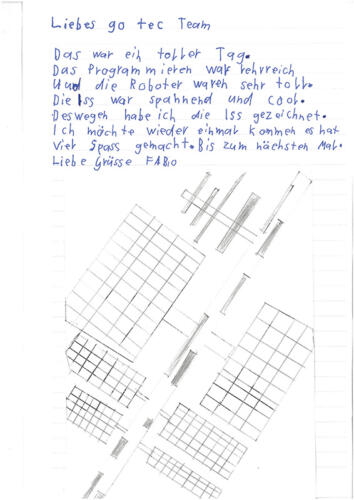 Liebes go tec Team
Das war ein toller Tag.
Das Programmieren war lehrreich
Und die Roboter waren sehr toll.
Die Iss war spannend und cool.
Deswegen habe ich die Iss gezeichnet.
Ich möchte wieder einmal kommen es hat
Viel Spass gemacht. Bis zum nächsten Mal.
Liebe Grüsse FABio